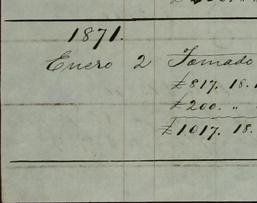 1871.
Enero 2 Tomado
£817. 18.
£200. "
£1017. 18.